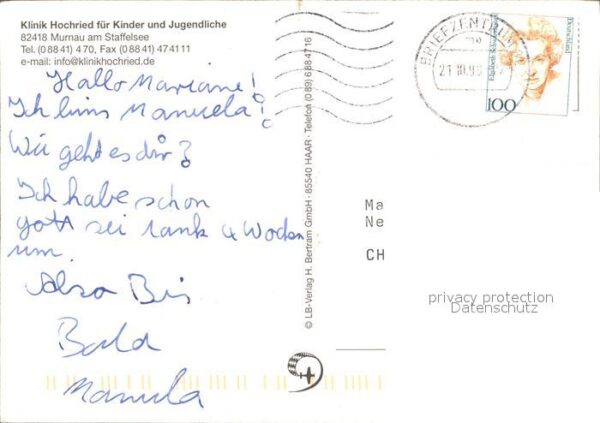 Klinik Hochried für Kinder und Jugendliche
82418 Murnau am Staffelsee
Tel. (0 88 41) 4 70, Fax (0 88 41) 47 41 11
e-mail: info@klinikhochried.de
Hallo Mariane!
Ich bins Manuela!
Wie geht es dir?
Ich habe schon
gott sei tank 4 Wochen
rum.
Also Bis
Bald
Manula
© LB-Verlag H. Bertram GmbH · 85540 HAAR · Telefon (0 89) 6 88 47 16
BRIEFZENTRUM
21.10.99
Deutschland
100
Ma
Ne
CH
privacy protection
Datenschutz